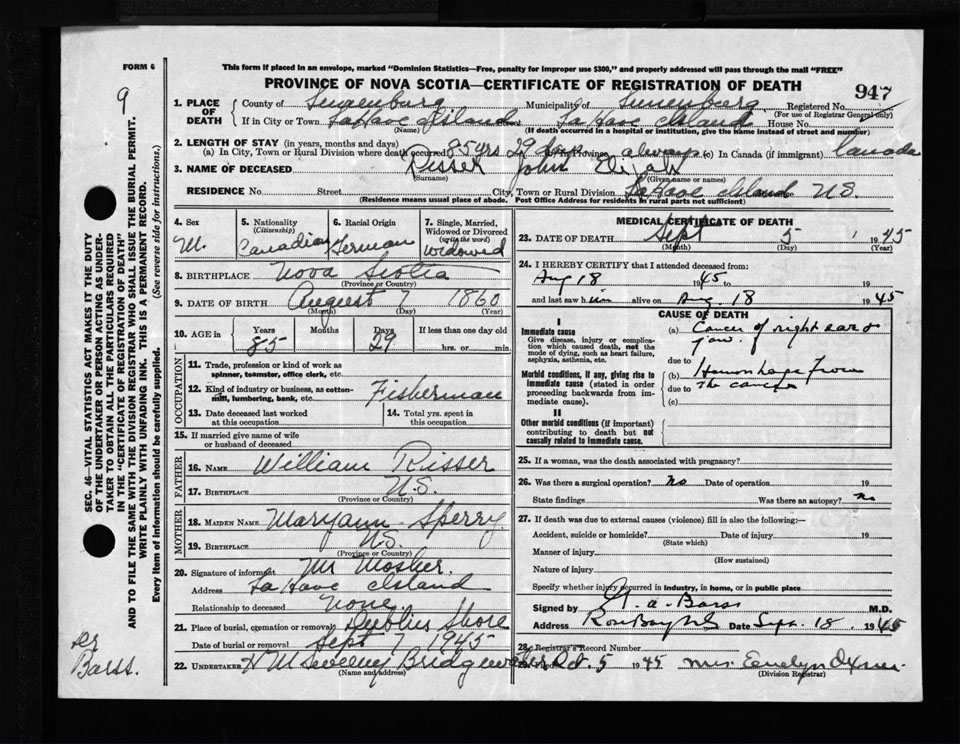 FORM 6
This form if placed in an envelope, marked "Dominion Statistics—Free, penalty for improper use $300," and properly addressed will pass through the mail "FREE"
PROVINCE OF NOVA SCOTIA—CERTIFICATE OF REGISTRATION OF DEATH
947
9
1. PLACE OF DEATH
County of Lunenburg Municipality of Lunenburg Registered No.
(For use of Registrar General only)
If in City or Town LaHave Island LaHave Island House No.
(Name) (If death occurred in a hospital or institution, give the name instead of street and number)
2. LENGTH OF STAY (in years, months and days)
(a) In City, Town or Rural Division where death occurred 85 yrs 29 days Province always (c) In Canada (if immigrant) Canada
3. NAME OF DECEASED Risser John Elijah
(Surname) (Given name or names)
RESIDENCE No. Street City, Town or Rural Division LaHave Island N.S.
(Residence means usual place of abode. Post Office Address for residents in rural parts not sufficient)
4. Sex M.
5. Nationality (Citizenship) Canadian
6. Racial Origin German
7. Single, Married, Widowed or Divorced (write the word) Widowed
8. BIRTHPLACE Nova Scotia
(Province or Country)
9. DATE OF BIRTH August 7 1860
(Month) (Day) (Year)
10. AGE in Years 85 Months Days 29 If less than one day old hrs. or min.
OCCUPATION
11. Trade, profession or kind of work as spinner, teamster, office clerk, etc.
12. Kind of industry or business, as cotton-mill, lumbering, bank, etc. Fisherman
13. Date deceased last worked at this occupation
14. Total yrs. spent in this occupation
15. If married give name of wife or husband of deceased
FATHER
16. NAME William Risser
17. BIRTHPLACE N.S.
(Province or Country)
MOTHER
18. MAIDEN NAME Maryann Sperry
19. BIRTHPLACE N.S.
(Province or Country)
20. Signature of informant Mr Mosher.
Address LaHave Island
Relationship to deceased none.
21. Place of burial, cremation or removal Dublin Shore
Date of burial or removal Sept 7 1945
22. UNDERTAKER H M Sweeny Bridgewater
(Name and address)
MEDICAL CERTIFICATE OF DEATH
23. DATE OF DEATH Sept 5 1945
(Month) (Day) (Year)
24. I HEREBY CERTIFY that I attended deceased from:
Aug 18 1945 to 19
and last saw him alive on Aug. 18 1945
CAUSE OF DEATH
I
Immediate cause
Give disease, injury or complication which caused death, not the mode of dying, such as heart failure, asphyxia, asthenia, etc.
(a) Cancer of right ear & jaw.
due to
Morbid conditions, if any, giving rise to immediate cause (stated in order proceeding backwards from immediate cause).
(b) Hemorrhage from
due to the cancer
(c)
II
Other morbid conditions (if important) contributing to death but not causally related to immediate cause.
25. If a woman, was the death associated with pregnancy?
26. Was there a surgical operation? No Date of operation 19
State findings Was there an autopsy? No
27. If death was due to external causes (violence) fill in also the following:—
Accident, suicide or homicide? Date of injury 19
(State which)
Manner of injury
(How sustained)
Nature of injury
Specify whether injury occurred in industry, in home, or in public place
Signed by R. A. Barss M.D.
Address Rose Bay N.S. Date Sept. 18, 1945
28. Registrar's Record Number
Oct. 5 1945 Mrs. Evelyn
(Division Registrar)
SEC. 46—VITAL STATISTICS ACT MAKES IT THE DUTY
OF THE UNDERTAKER OR PERSON ACTING AS UNDER-
TAKER TO OBTAIN ALL THE PARTICULARS REQUIRED
IN THE "CERTIFICATE OF REGISTRATION OF DEATH"
AND TO FILE THE SAME WITH THE DIVISION REGISTRAR WHO SHALL ISSUE THE BURIAL PERMIT.
WRITE PLAINLY WITH UNFADING INK. THIS IS A PERMANENT RECORD.
Every item of information should be carefully supplied. (See reverse side for instructions.)
Dr
Barss.